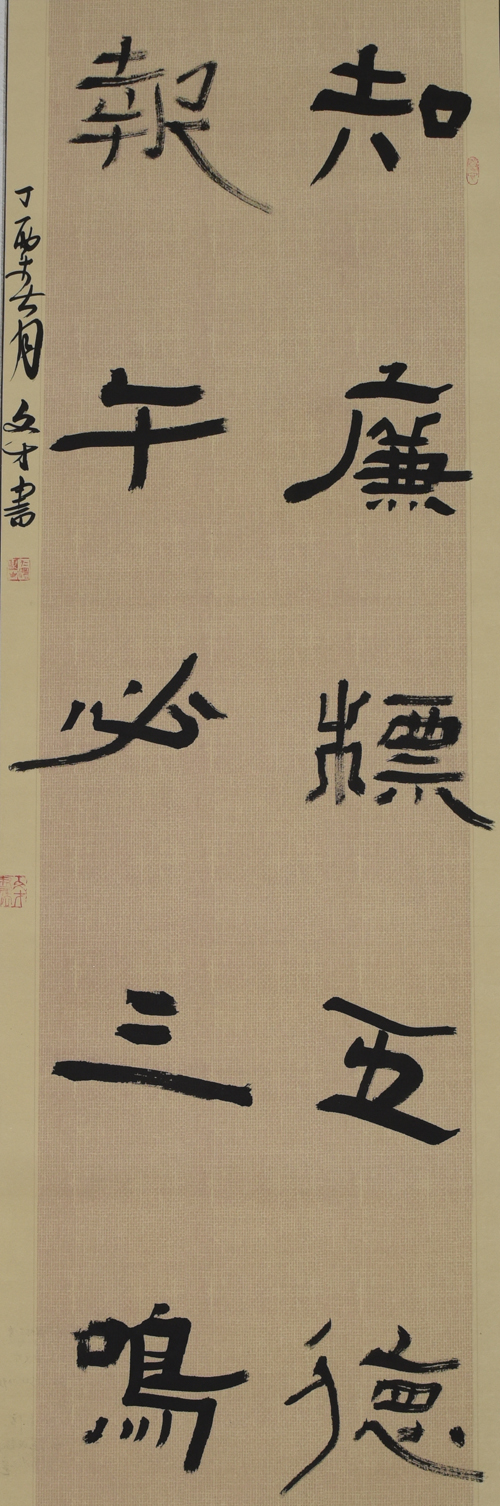 知廉標五德
報午必三鳴
丁酉六月 文才書